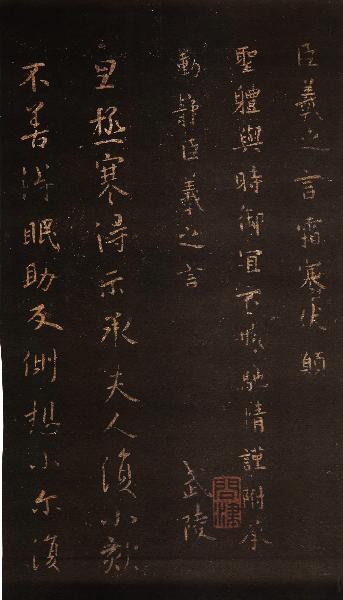 臣羲之言霜寒伏願
聖體與時御宜不勝馳情謹附承
動靜臣羲之言
武陵
旦極寒得示承夫人須小欬
不善得眠助反側想小尔復